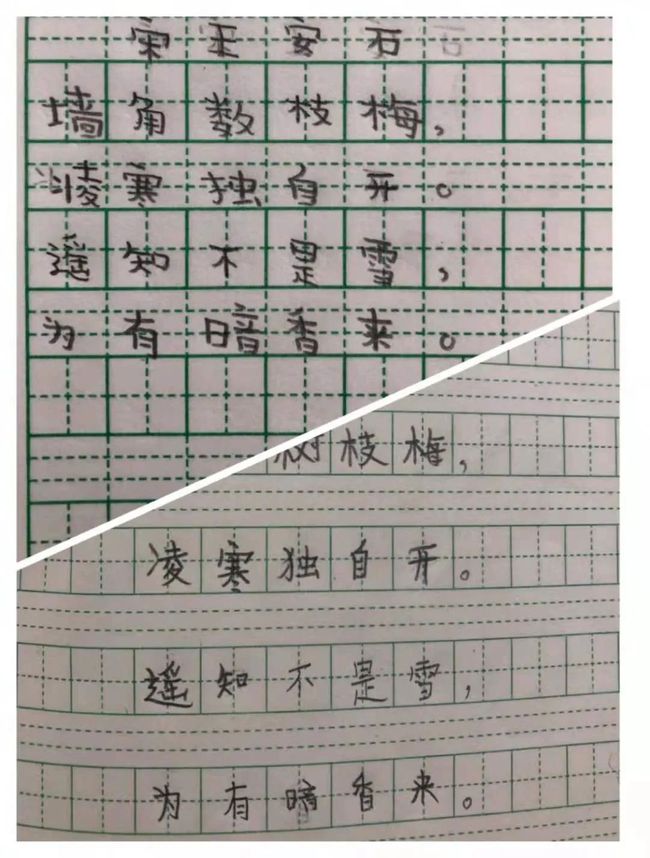 宋王安石
墙角数枝梅，
凌寒独自开。
遥知不是雪，
为有暗香来。
树枝梅，
凌寒独自开。
遥知不是雪，
为有暗香来。